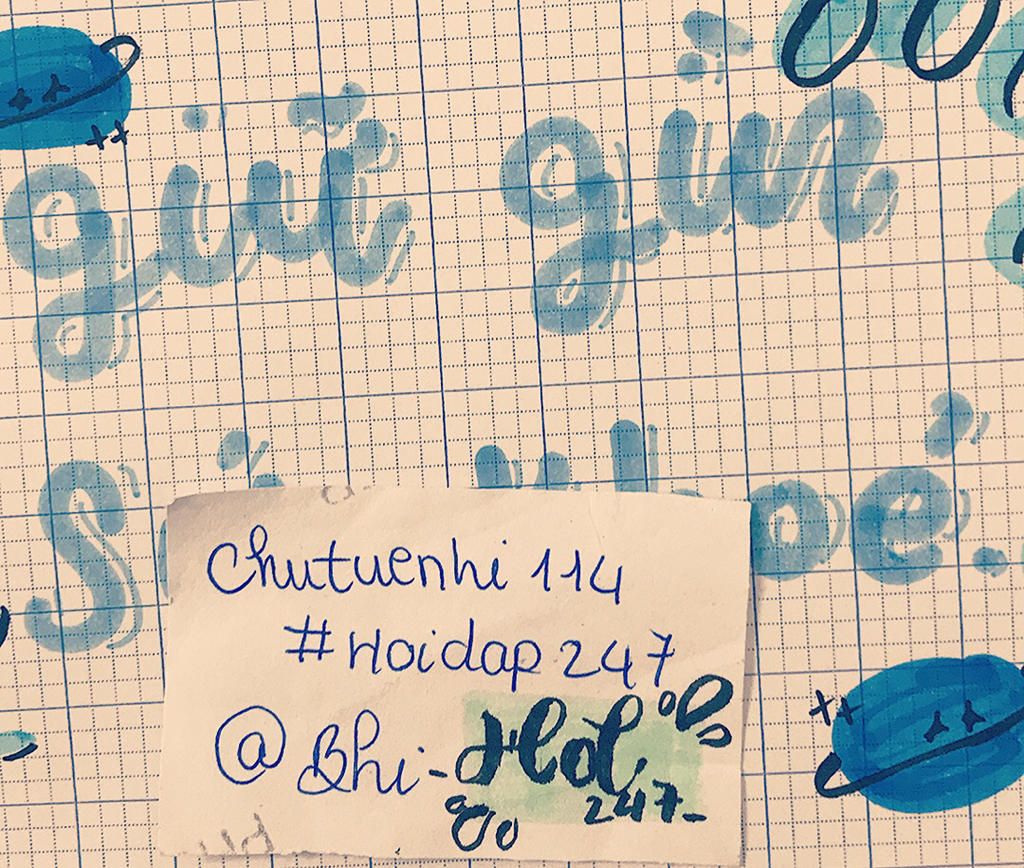 giữ gìn
Sức khoẻ.
Chutuenhi 114
#Hoidap 247
@Bhi-
247-